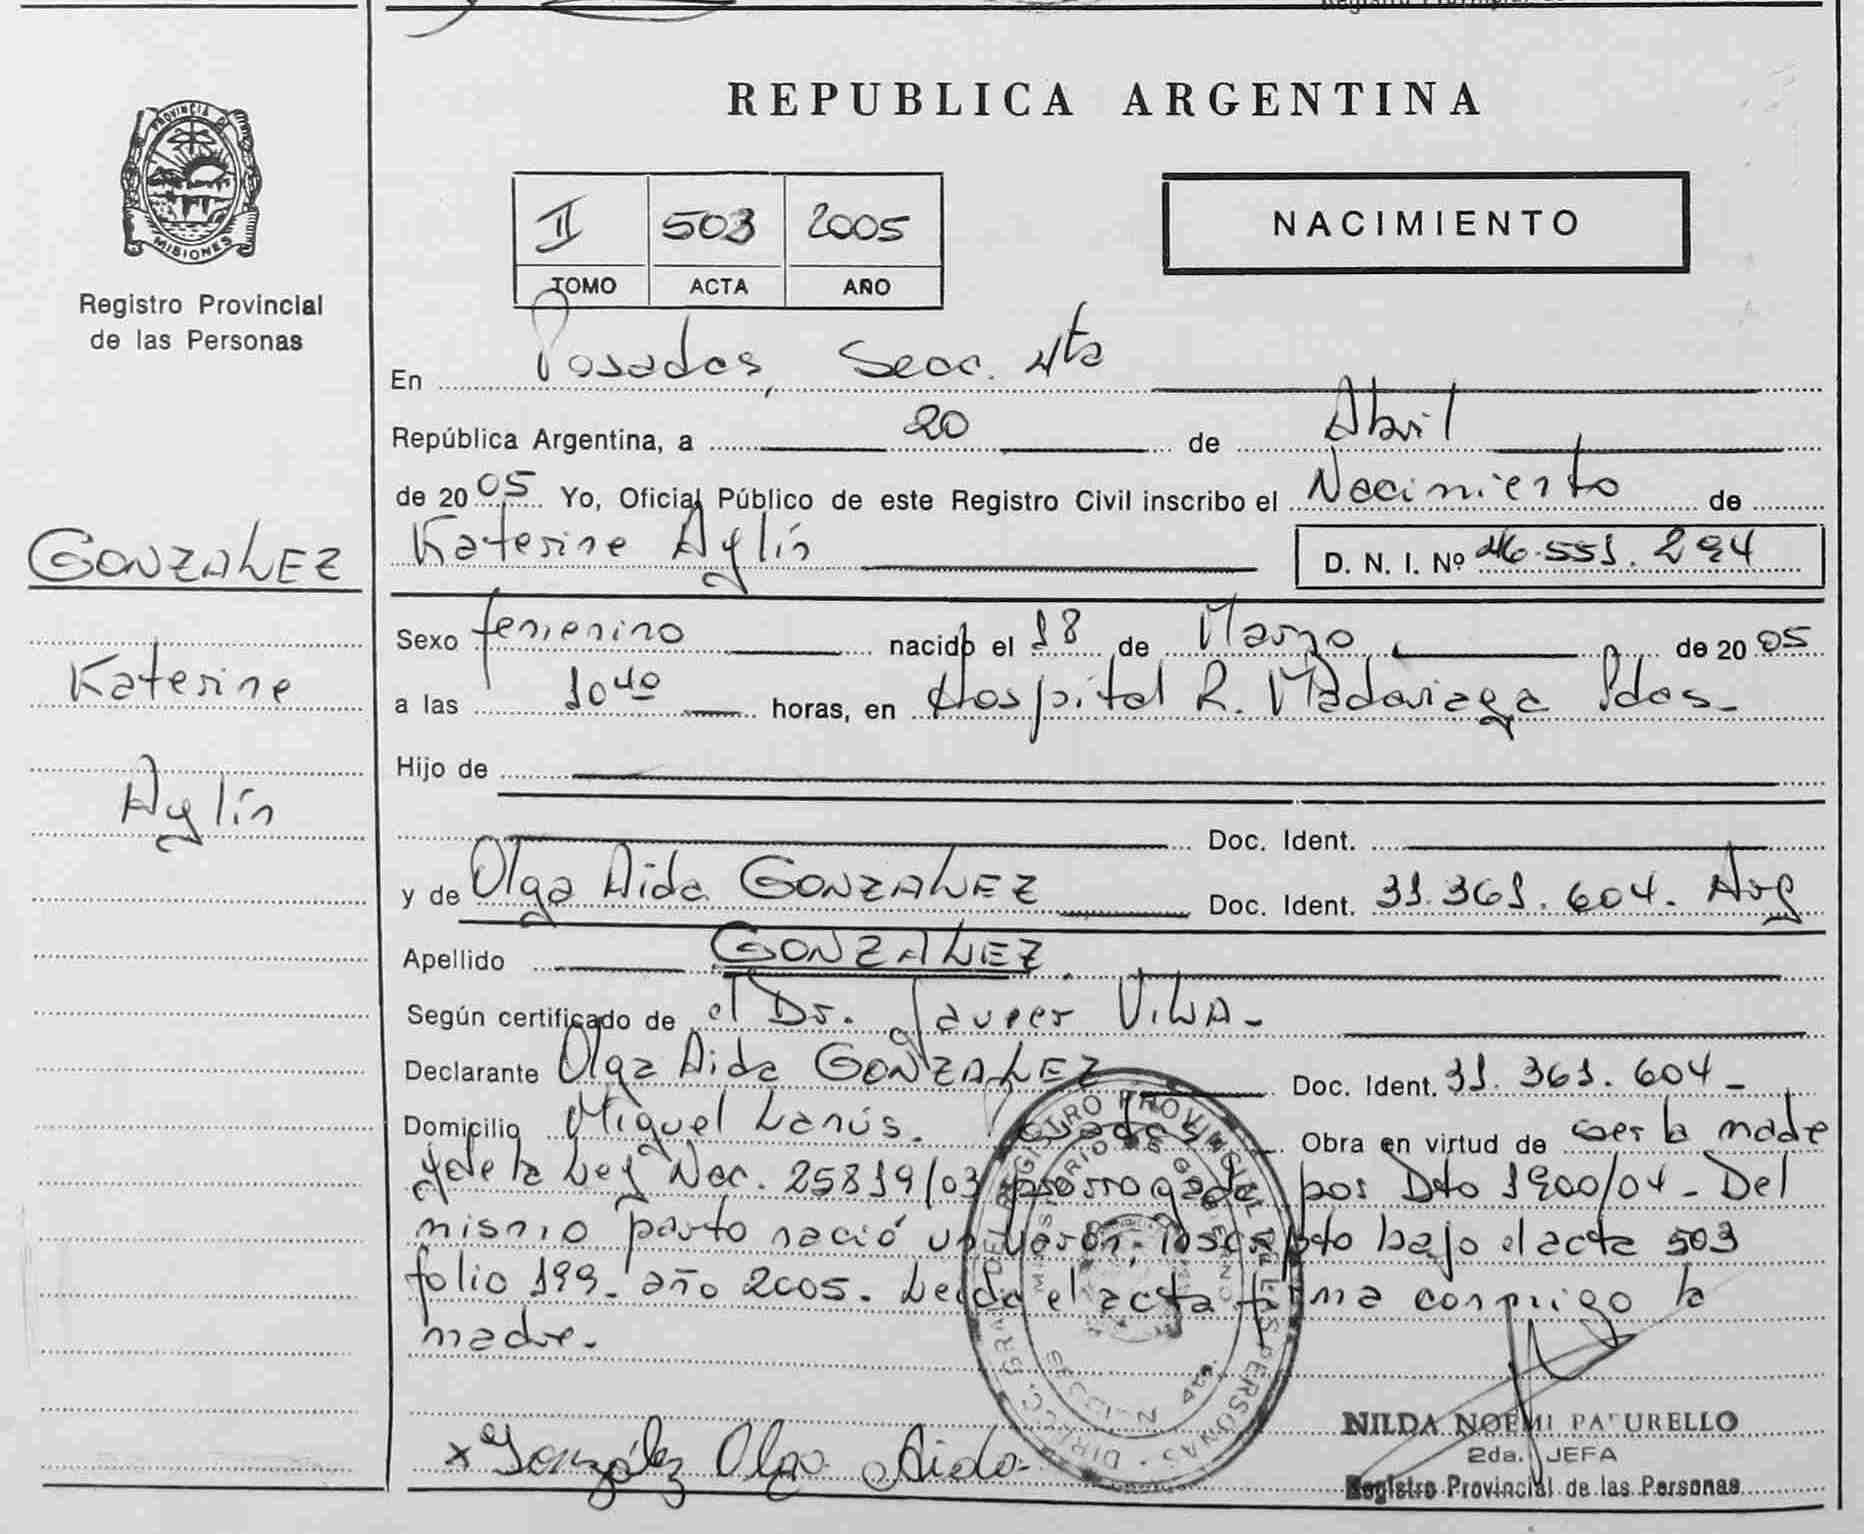 REPUBLICA ARGENTINA
PROVINCIA DE
MISIONES
Registro Provincial
de las Personas
II 503 2005
TOMO ACTA AÑO
NACIMIENTO
En Posadas, Secc. 4ta
República Argentina, a 20 de Abril
de 2005 Yo, Oficial Público de este Registro Civil inscribo el Nacimiento de
GONZALEZ
Katerine
Aylín
Katerine Aylín D. N. I. Nº 46.551.294
Sexo femenino nacido el 18 de Marzo de 2005
a las 10 40 horas, en Hospital R. Madariaga Pdas-
Hijo de
Doc. Ident.
y de Olga Aida GONZALEZ Doc. Ident. 31.361.604. Arg
Apellido GONZALEZ
Según certificado de el Dr. Javier ViLLA-
Declarante Olga Aida GONZALEZ Doc. Ident. 31.361.604-
Domicilio Miguel Lanús. Posadas Obra en virtud de ser la madre
y de la Ley Nac. 25819/03 prorrogada por Dto 1900/04- Del
mismo parto nació un varón. inscripto bajo el acta 503
folio 199- año 2005. Leida el acta firma conmigo la
madre.
x González Olga Aida
NILDA NOEMI PATURELLO
2da. JEFA
Registro Provincial de las Personas